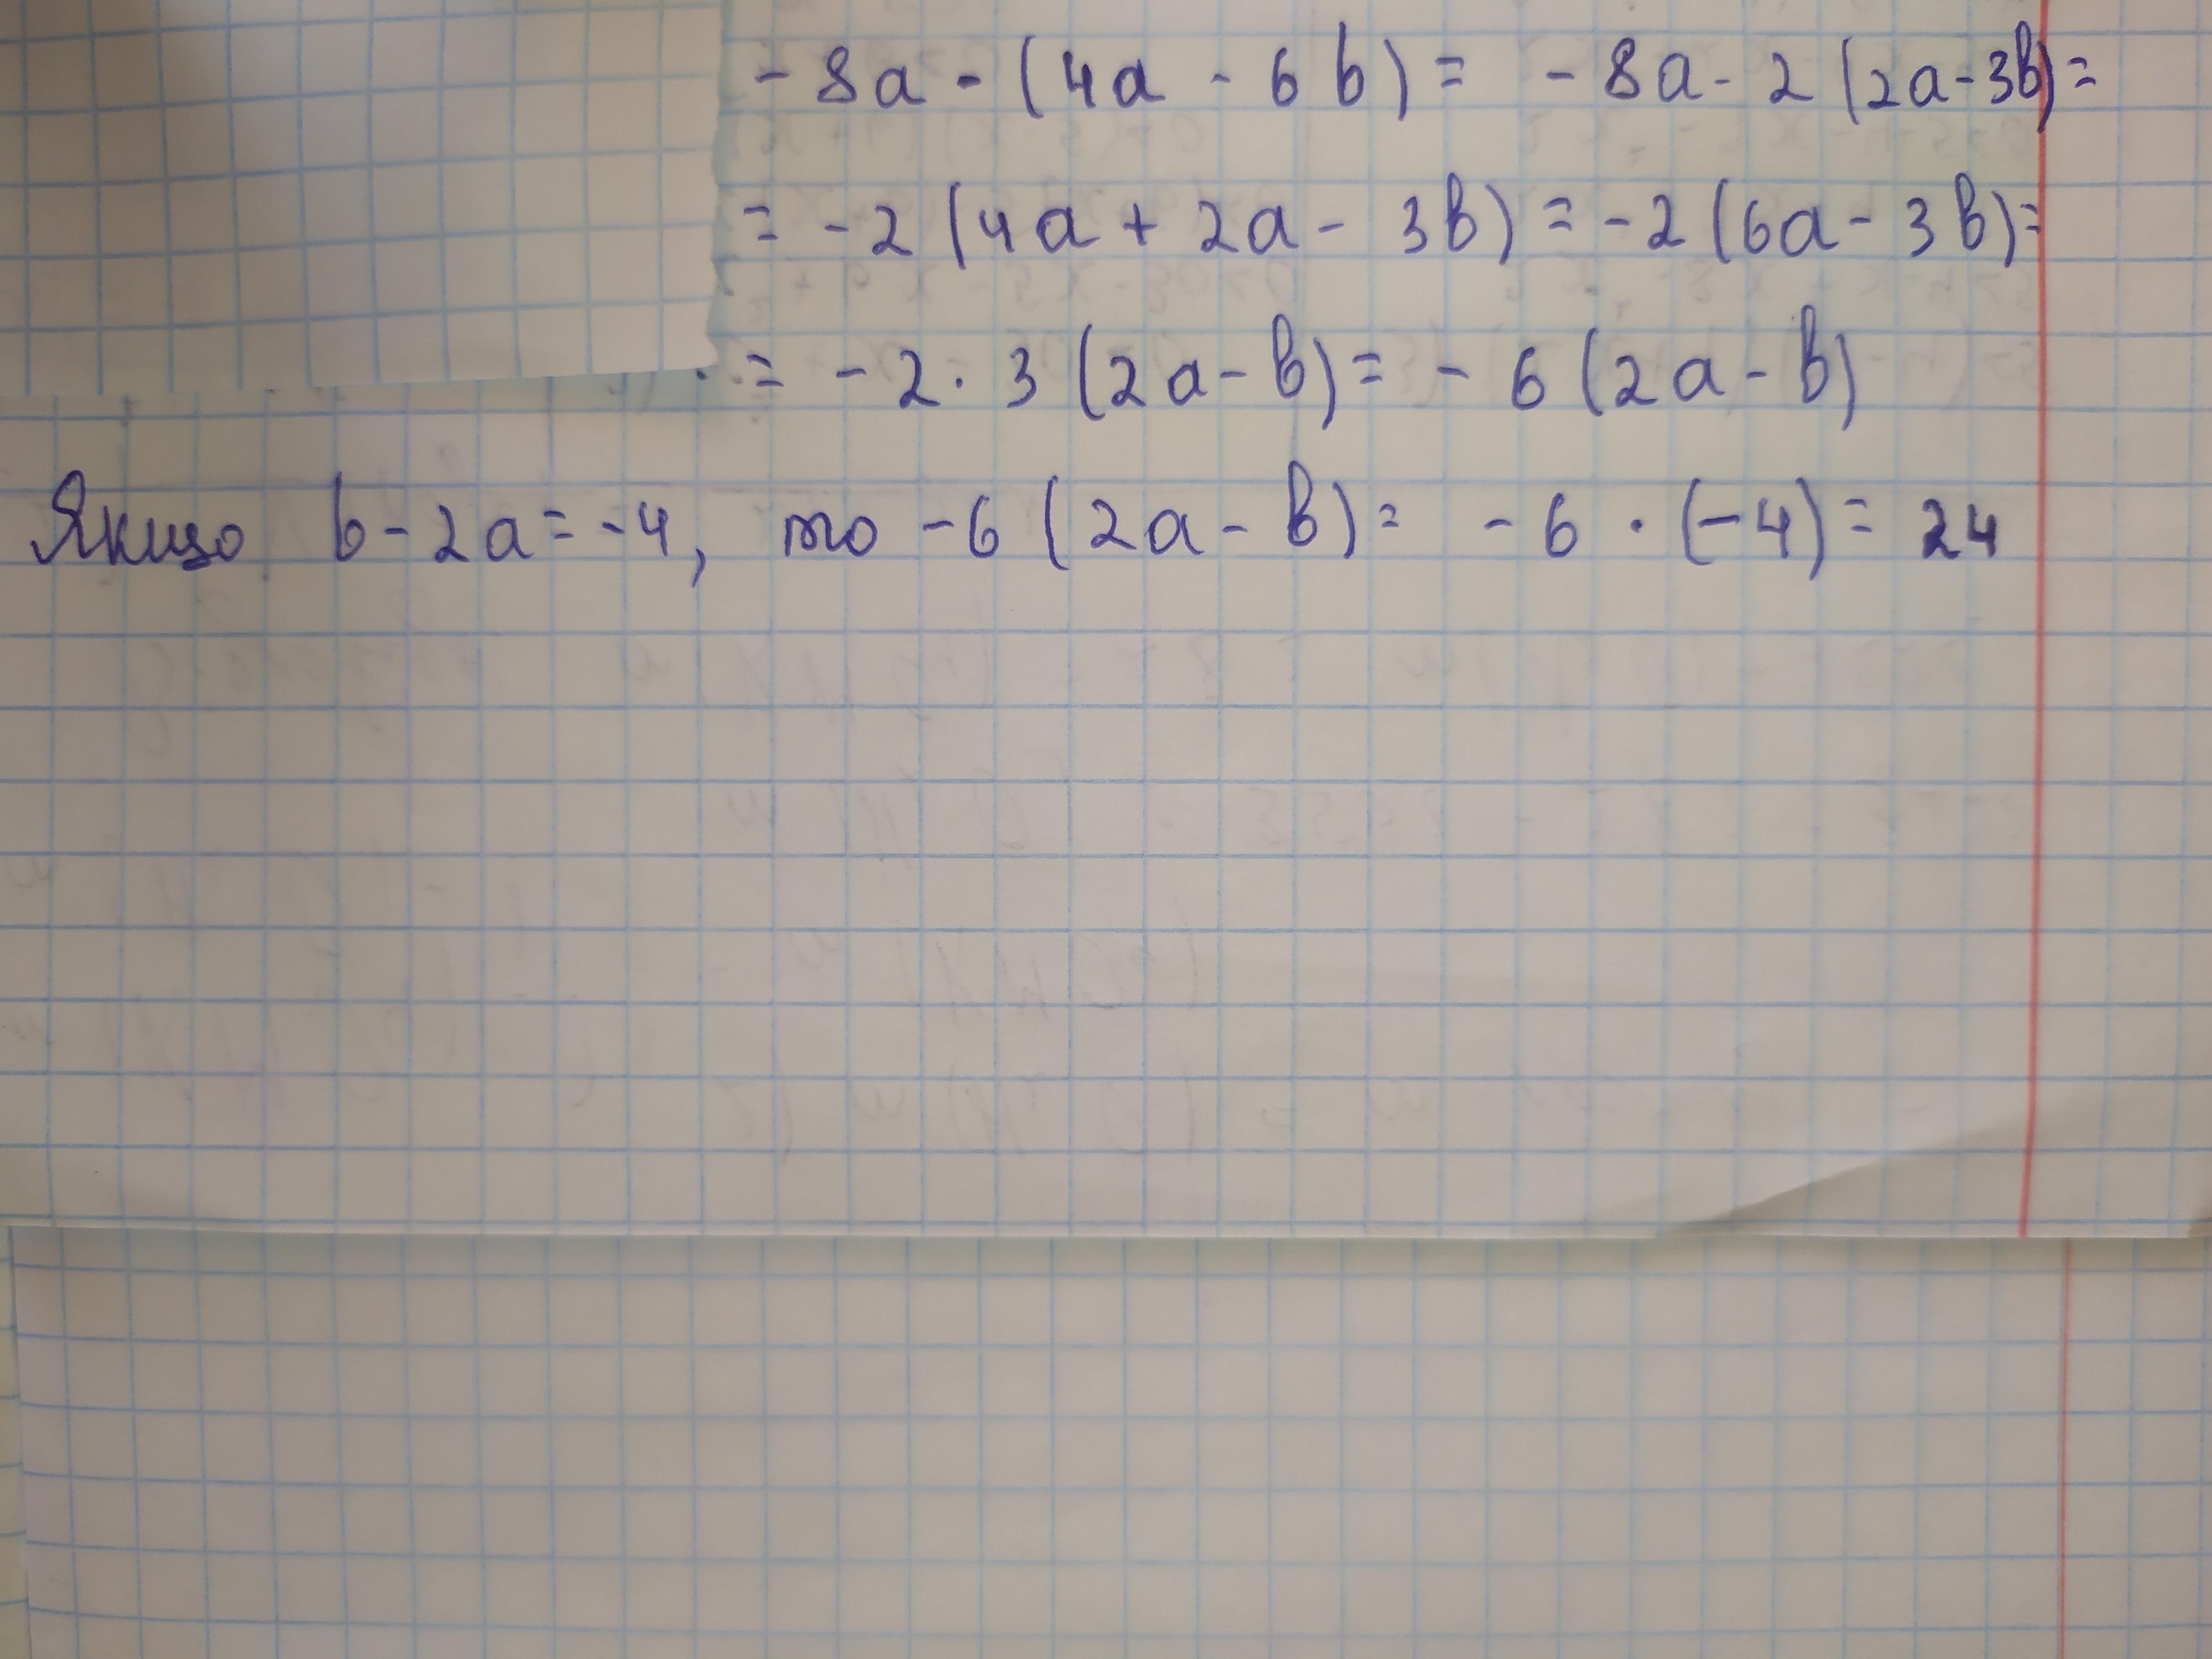 - 8a - (4a - 6b) = - 8a - 2 (2a - 3b) =
= - 2 (4a + 2a - 3b) = - 2 (6a - 3b) =
= - 2 · 3 (2a - b) = - 6 (2a - b)
Якщо b - 2a = - 4, то - 6 (2a - b) = - 6 · (- 4) = 24